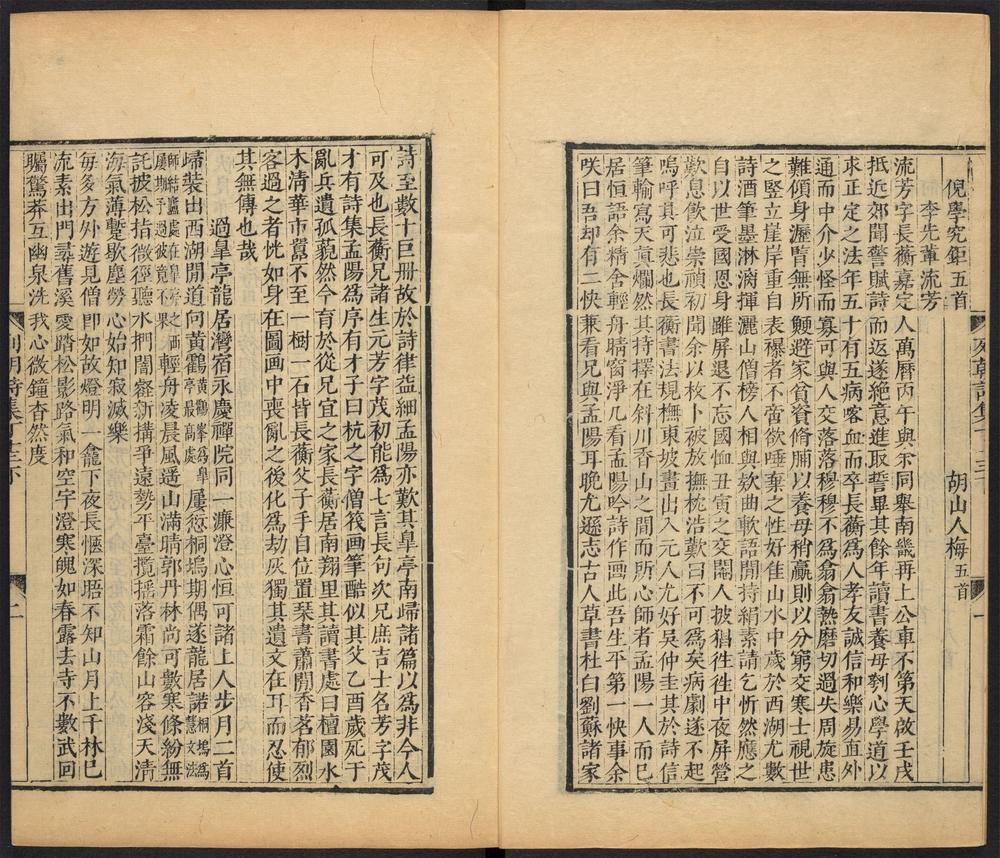 倪學究鉅五首
胡山人梅五首
李先輩流芳
流芳字長蘅嘉定人萬曆丙午與余同舉南畿再上公車不第天啟壬戌
抵近郊聞警賦詩而返遂絶意進取誓畢其餘年讀書養母刳心學道以
求正定之法年五十有五病喀血而卒長蘅爲人孝友誠信和樂易直外
通而中介少怪而寡可與人交落落穆穆不爲翕翕熱磨切過失周旋患
難傾身瀝腎無所鯁避家貧資脩脯以養母稍贏則以分窮交寒士視世
之竪立崖岸重自表襮者不啻欲唾棄之性好佳山水中歲於西湖尤數
詩酒筆墨淋漓揮灑山僧榜人相與欵曲軟語閒持絹素請乞忻然應之
自以世受國恩身雖屏退不忘國恤丑寅之交閹人披猖徃徃中夜屏營
歎息飲泣崇禎初聞余以枚卜被放撫枕浩歎曰不可爲矣病劇遂不起
嗚呼其可悲也長蘅書法規橅東坡畫出入元人尤好吳仲圭其於詩信
筆輸寫天真爛然其持擇在斜川香山之間而所心師者孟陽一人而巳
居恒語余精舍輕舟晴窗淨几看孟陽吟詩作画此吾生平第一快事余
咲曰吾却有二快兼看兄與孟陽耳晚尤遜志古人草書杜白劉蘇諸家
詩至數十巨冊故於詩律益細孟陽亦歎其臯亭南歸諸篇以爲非今人
可及也長蘅兄諸生元芳字茂初能爲七言長句次兄庶吉士名芳字茂
才有詩集孟陽爲序有才子曰杭之字僧筏画筆酷似其父乙酉歲死于
亂兵遺孤藐然今育於從兄宜之家長蘅居南翔里其讀書處曰檀園水
木清華市囂不至一樹一石皆長蘅父子手自位置琹書蕭閒香茗郁烈
客過之者恍如身在圖画中喪亂之後化爲劫灰獨其遺文在耳而忍使
其無傳也哉
過臯亭龍居灣宿永慶禪院同一濂澄心恒可諸上人步月二首
歸裝出西湖開道向黃鶴黃鶴峯爲臯亭最高處屢愆桐塢期偶遂龍居諾桐塢爲慧文法
師結廬處在臯亭屢期予過彼竟不果之西輕舟凌晨風遥山滿晴郭丹林尚可數寒條紛無
託披松指微徑聽水捫闇壑新搆爭遠勢平臺攬揺落霜餘山容淺天清
海氣薄蹔歇塵勞心始知寂滅樂
每多方外遊見僧即如故燈明一龕下夜長愜深晤不知山月上千林巳
流素出門尋舊溪愛踏松影路氣和空宇澄寒魄如春露去寺不數武回
矚驚莽互幽泉洗我心微鐘杳然度
列朝詩集丁十三下
一
列朝詩集丁十三下
二